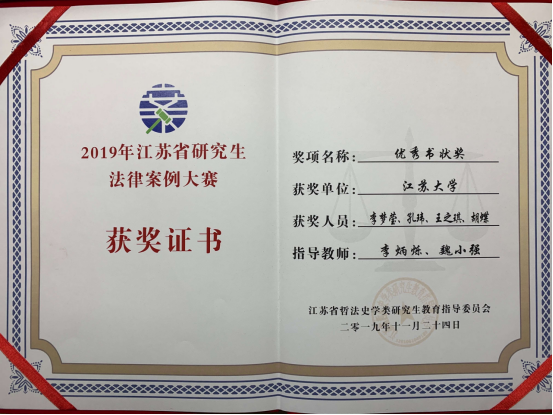 2019年江苏省研究生
法律案例大赛
获奖证书
奖项名称：优秀书状奖
获奖单位：江苏大学
获奖人员：李梦莹、孔玮、王之琪、胡蝶
指导教师：李炳烁、魏小强
江苏省哲法史学类研究生教育指导委员会
二零一九年十一月二十四日